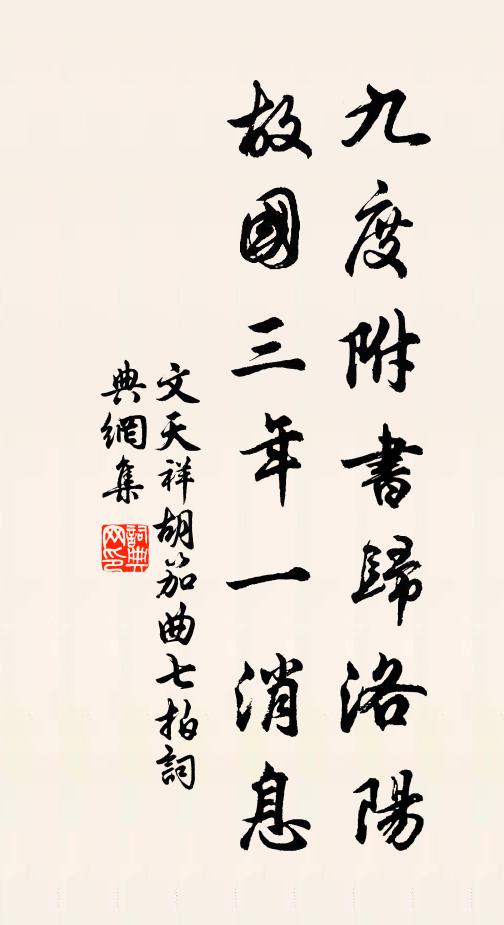 九度附書歸洛陽
故國三年一消息
文天祥胡笳曲七拍詞
典網集
詞典網印